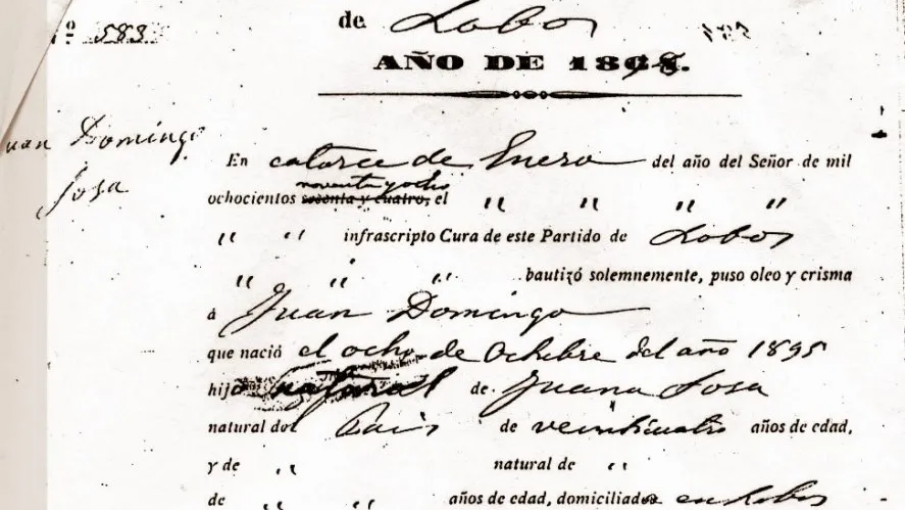 Nº 583
de Lobos
AÑO DE 1898.
Juan Domingo
Sosa
En catorce de Enero del año del Señor de mil
noventa y ocho
ochocientos sesenta y cuatro, el " " " "
" " infrascripto Cura de este Partido de Lobos
" " " bautizó solemnemente, puso oleo y crisma
á Juan Domingo
que nació el ocho de Octubre del año 1895
hijo natural de Juana Sosa
natural del Pais de veinticuatro años de edad,
y de " natural de "
de " " años de edad, domiciliados en Lobos